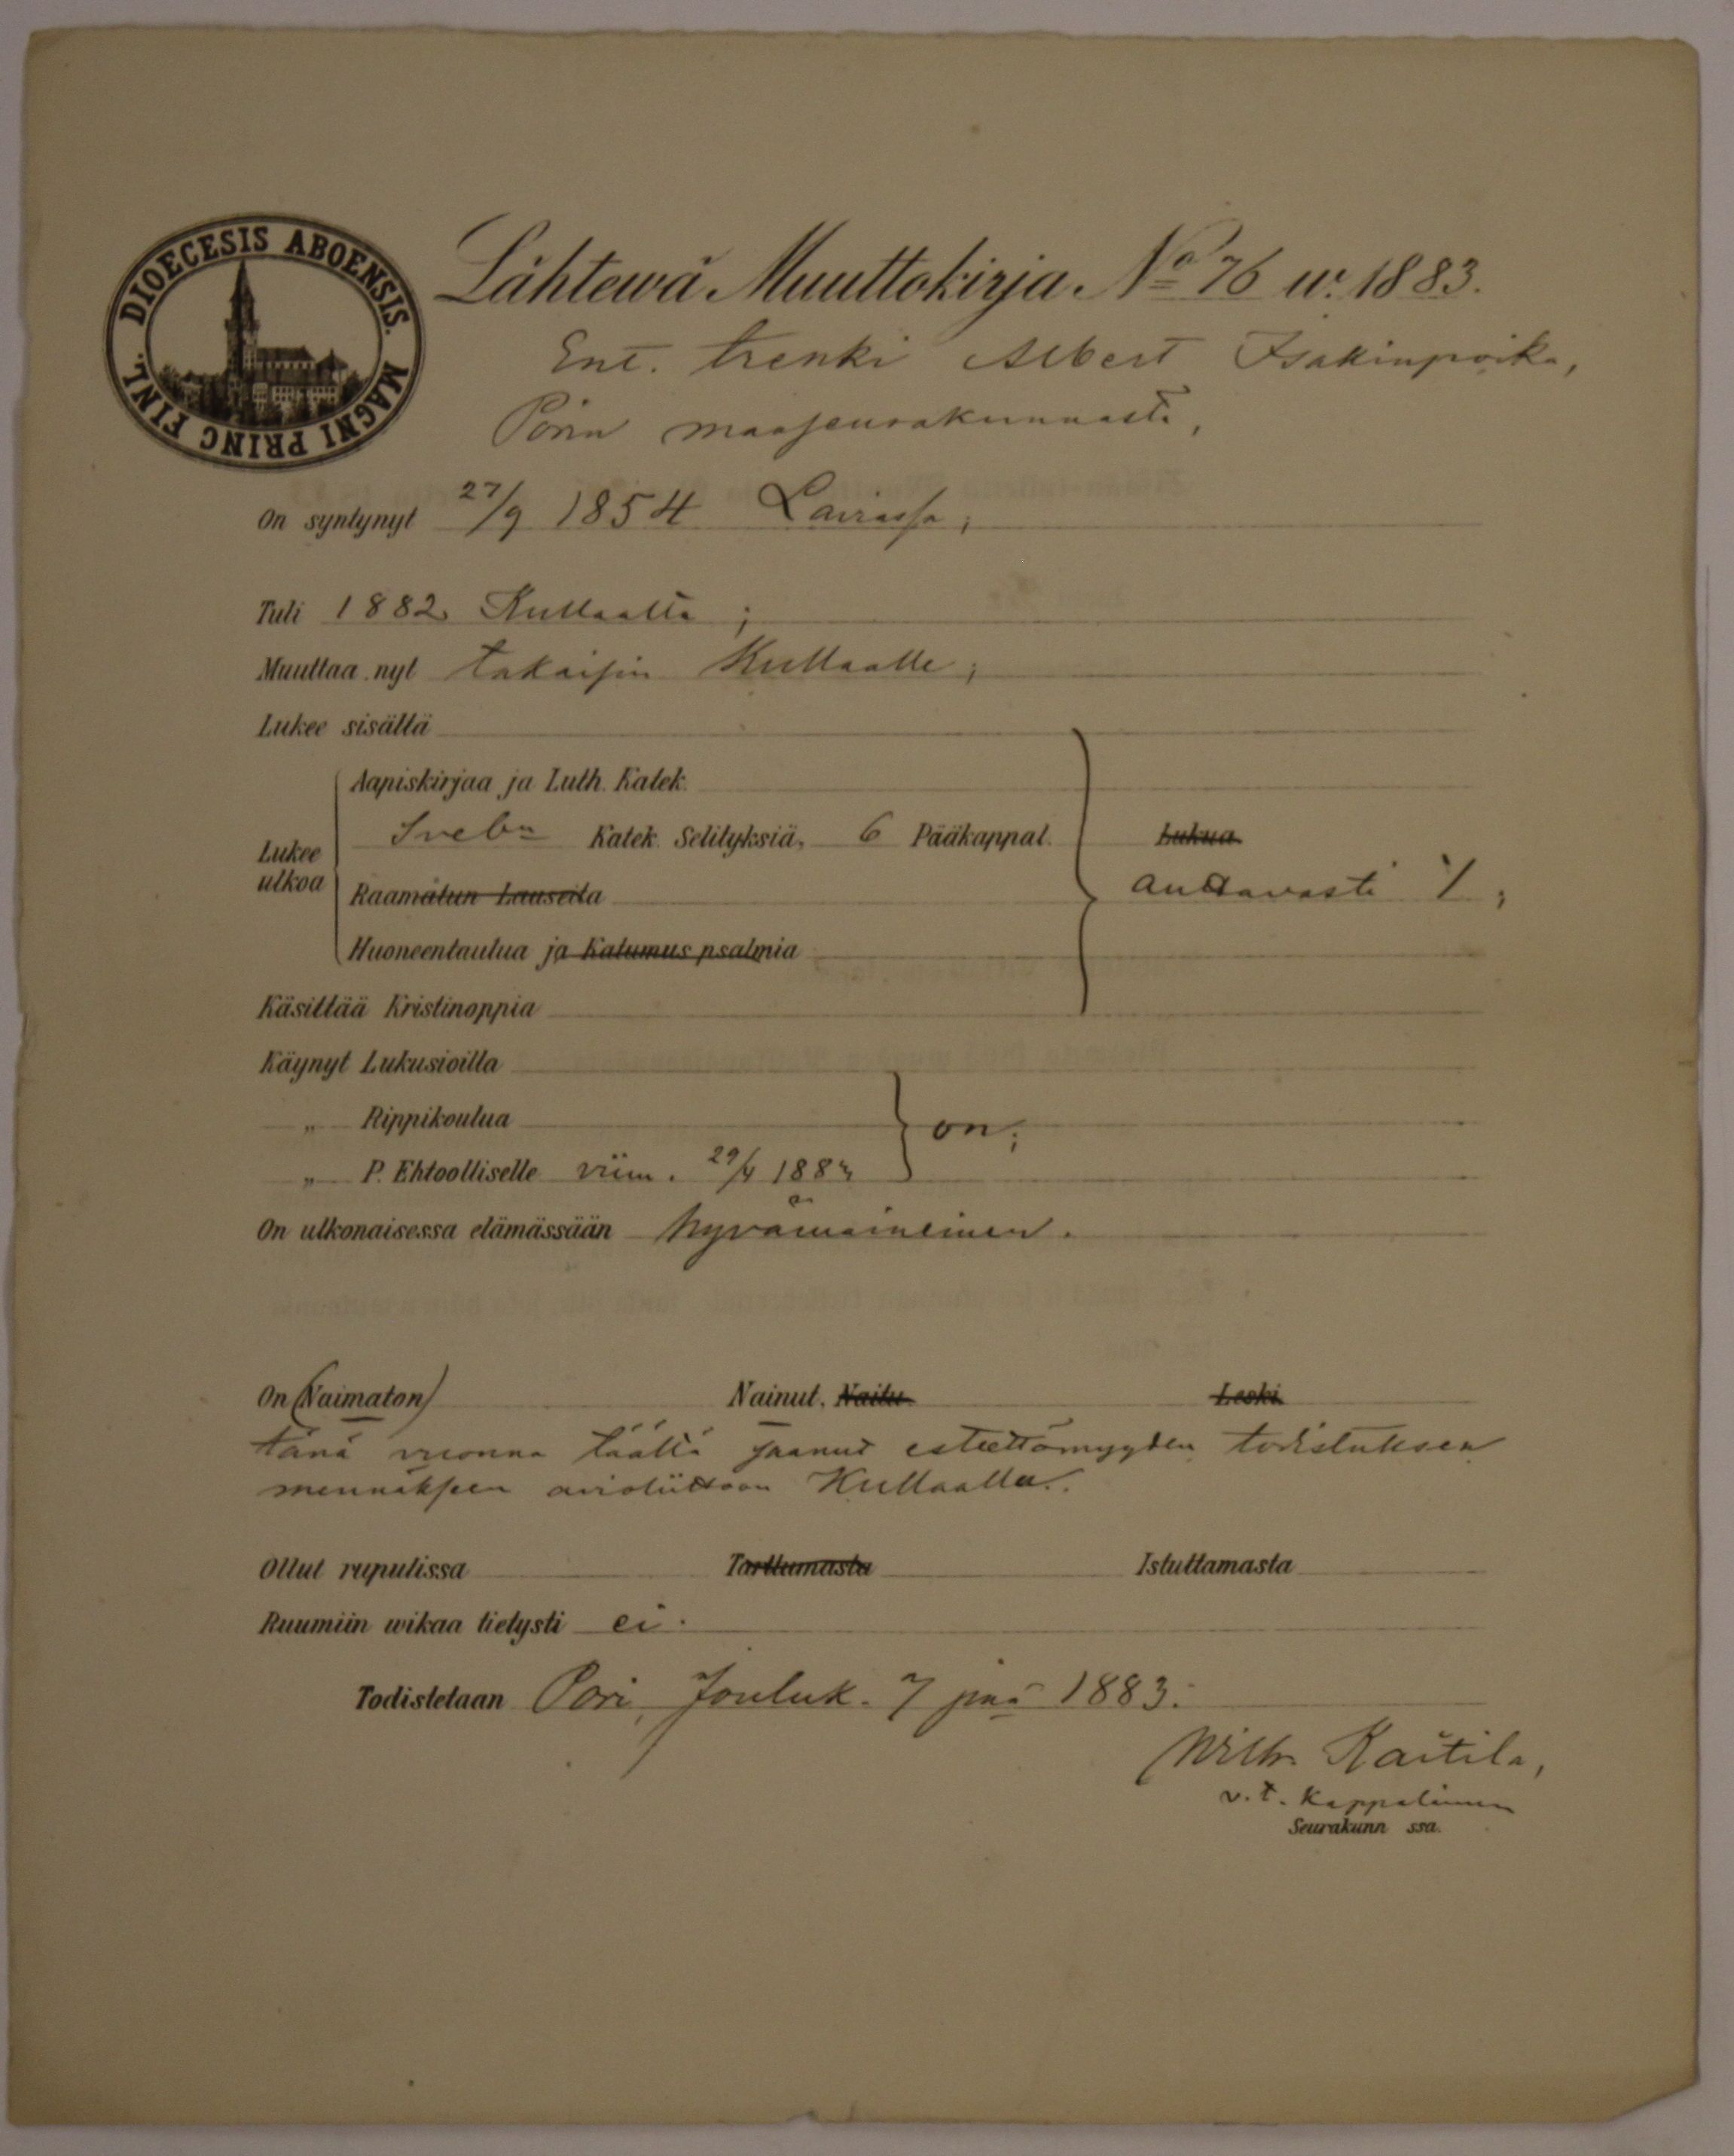 DIOECESIS ABOENSIS. MAGNI PRINC FINL.
Lähtewä Muuttokirja No 76 w. 1883.
Ent. trenki Albert Isakinpoika,
Porin maaseurakunnasta,
On syntynyt 27/9 1854 Laviassa;
Tuli 1882 Kullaalta;
Muuttaa nyt takaisin Kullaalle;
Lukee sisältä
Aapiskirjaa ja Luth. Katek.
Sveb. Katek. Selityksiä, 6 Pääkappal. Lukua
Lukee ulkoa
Raamatun Lauseita auttavasti
Huoneentaulua ja Katumus psalmia
Käsittää Kristinoppia
Käynyt Lukusioilla
„ Rippikoulua on;
„ P. Ehtoolliselle viim. 29/4 1883
On ulkonaisessa elämässään hyvämaineinen.
On (Naimaton) Nainut. Naitu Leski
tänä vuonna täältä saanut esteettömyyden todistuksen
mennäkseen avioliittoon Kullaalla.
Ollut rupulissa Tarttumasta Istuttamasta
Ruumiin wikaa tietysti ei.
Todistetaan Pori, Jouluk. 7 pnä 1883.
Wilh. Kaitila,
v. t. Kappalainen
Seurakunn ssa.